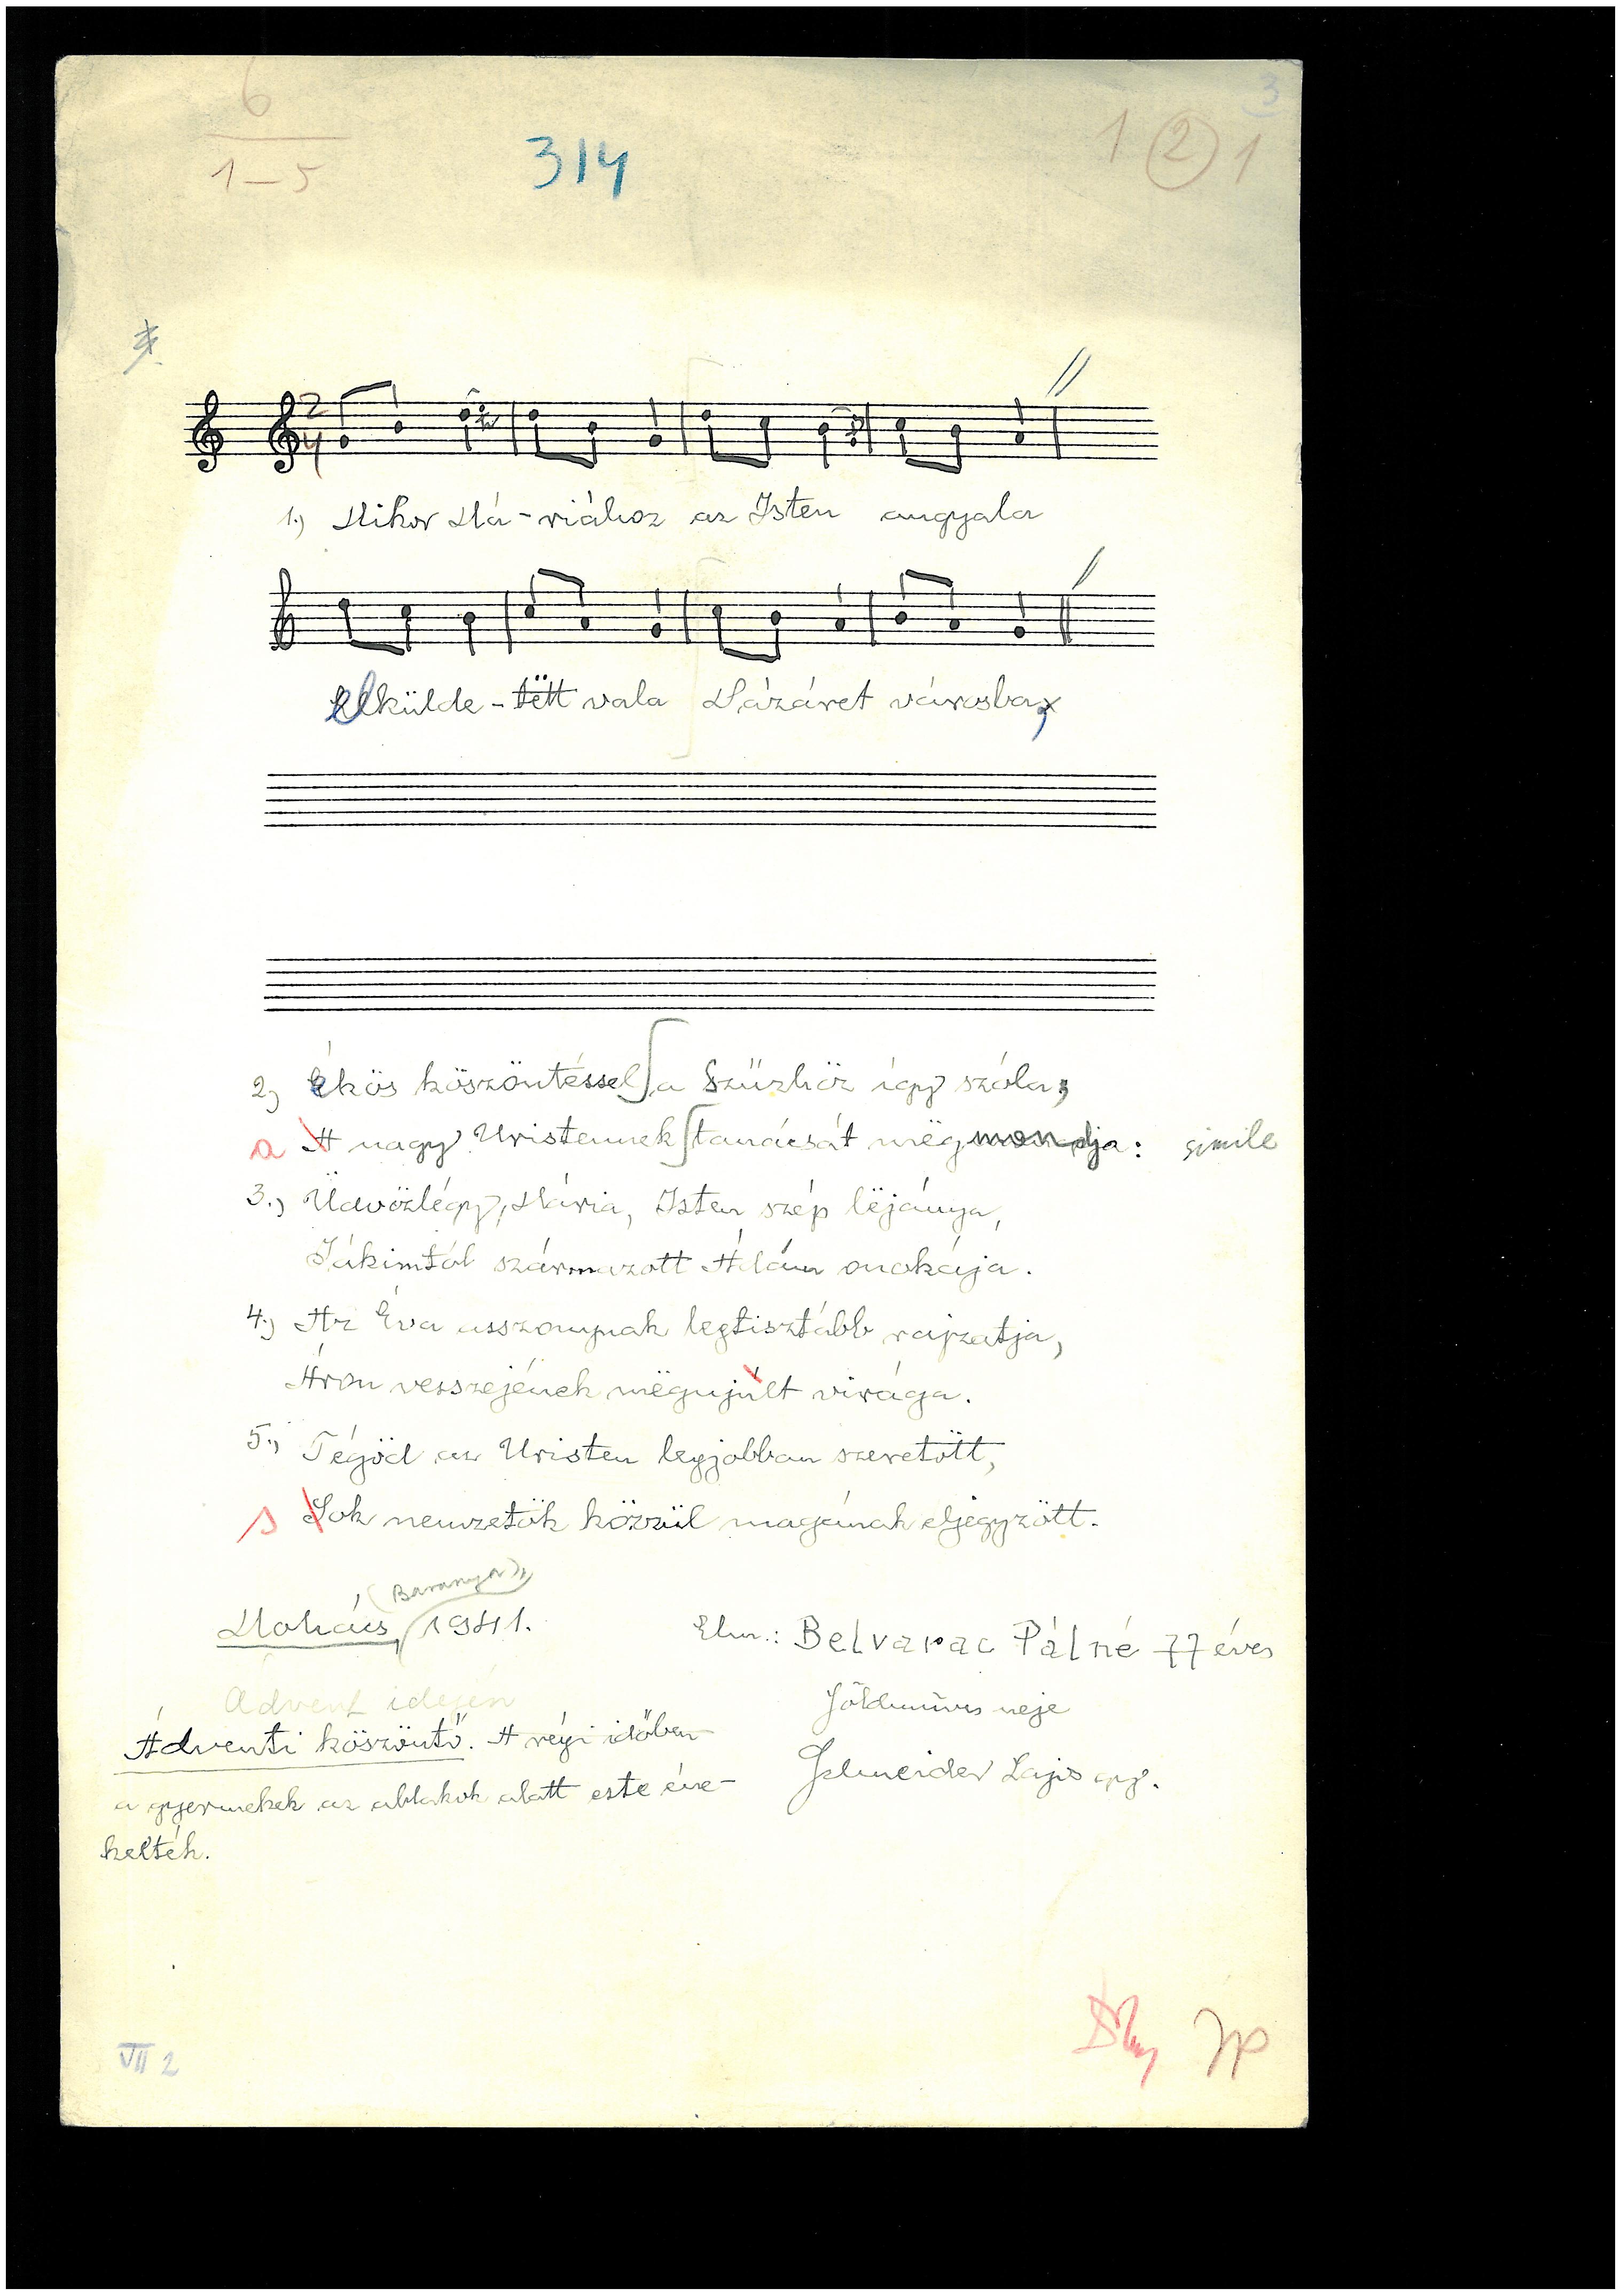 6
1–5
314
3
1 2 1
2
4
1.) Mikor Má-riához az Isten angyala
elkülde-tëtt vala Názáret városba,
2.) Ékös köszöntéssel a Szűzhöz így szóla;
a A nagy Uristennek tanácsát mëgmondja: simile
3.) Üdvözlégy, Mária, Isten szép lëjánya,
Jákimtól származott Ádám onokája.
4.) Az Éva asszonynak legtisztább rajzatja,
Áron vesszejének mëgujult virága.
5.) Tégöd az Uristen legjobban szeretött,
s Sok nemzetök közzül magának eljegyzött.
(Baranya),
Mohács, 1941.
Elm.: Belvarac Pálné 77 éves
földmüves neje
Advent idején
Ádventi köszöntő. A régi időben
a gyermekek az ablakok alatt este éne-
kelték.
Schneider Lajos gy.
VII 2